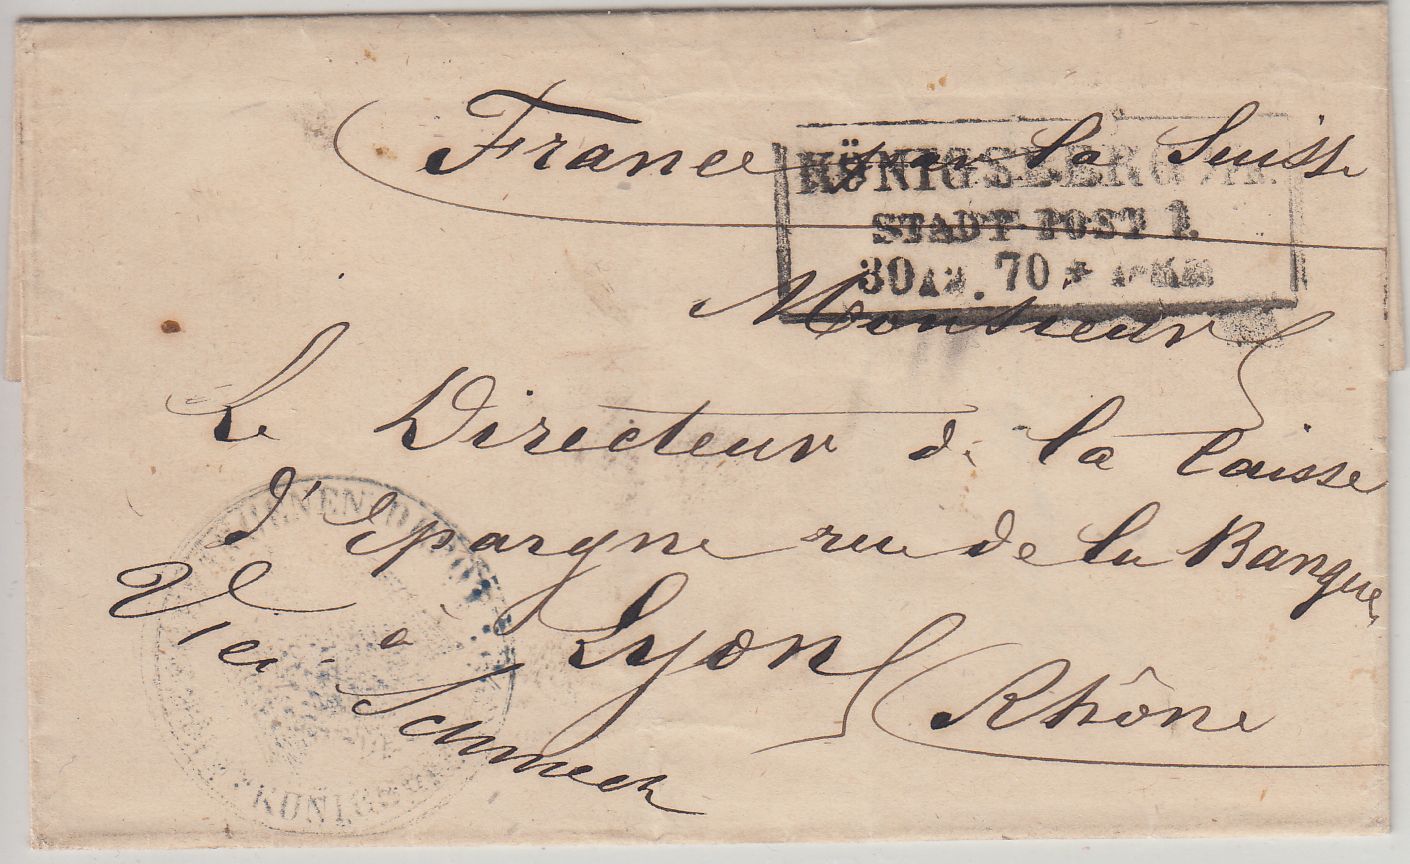 France par la Suisse
KÖNIGSBERG
STADT-POST I.
30 70 *
Monsieur
Le Directeur de la Caisse
d'Epargne rue de la Banque
à Lyon
Rhône
KÖNIGS